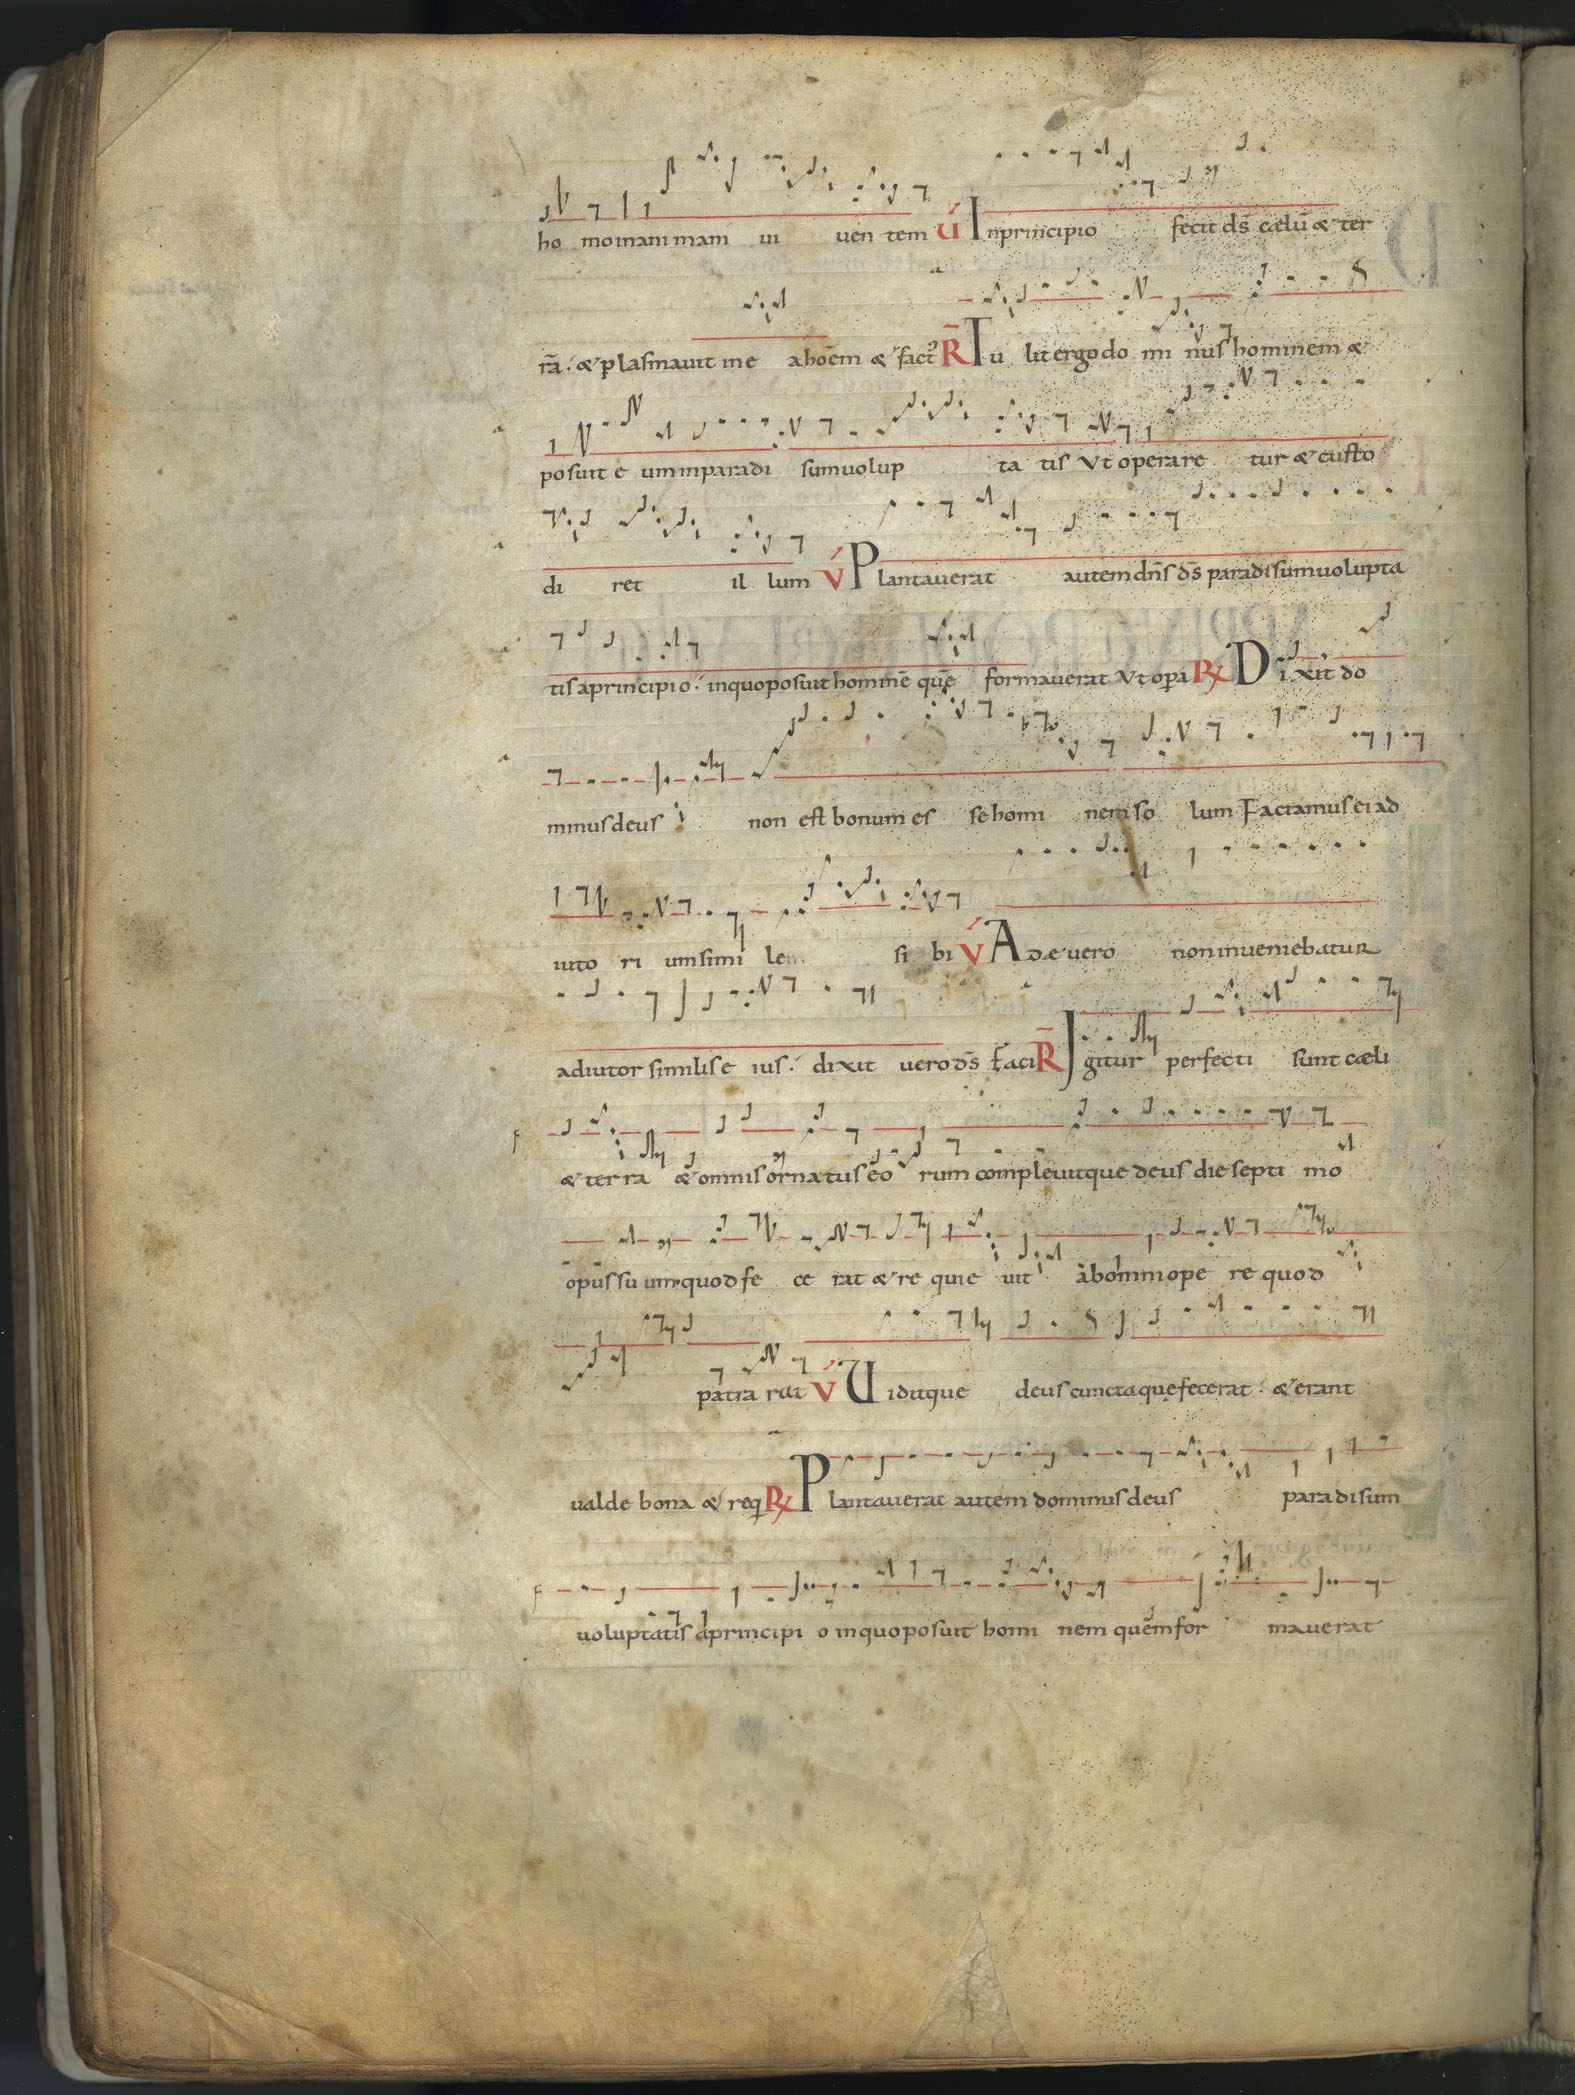 ho mo inani mam ui uen tem V́ Inprincipio fecit dš cælū & ter
rā. & plasmauit me a hoēm & fact᾽ R̄ Tu lit ergo do mi nus hominem &
posuit e um inparadi sumuolup ta tis Vt operare tur & custo
di ret il lum V́ Plantauerat autem dn̄s dš paradisumuolupta
tis aprincipio. inquoposuit hominē quē formauerat Vt opa R̷ Di xit do
minus deus non est bonum es se homi nem so lum Faciamus ei ad
iuto ri umsimi le si bi V́ Adæ uero noninueniebatur
adiutor similis e ius. dixit uero dš Faci R̄ Igitur perfecti sunt cæli
& ter ra & omnis ornatus eo rum compleuitque deus die septi mo
opus su um quod fe ce rat & re quie uit ab omni ope re quod
patra rat V́ Uiditque deus cuncta quę fecerat. & erant
ualde bona & req R̷ Plantauerat autem dominus deus paradisum
uoluptatis aprincipi o inquoposuit homi nem quem for mauerat